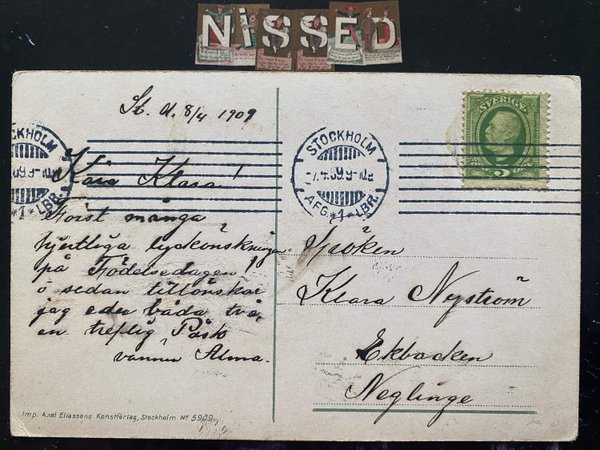 NiSSED
St. d. 8/4 1909
SVERIGE
5
STOCKHOLM
09.9-10F
*1* LBR.
STOCKHOLM
-7.4.09.9-10F
AFG. *1* LBR.
Kära Klara!
Först många
hjertliga lyckönskningar
på Födelsedagen,
o sedan tillönskar
jag eder båda två,
en treflig Påsk
Alma.
Fröken
Klara Nyström
Ekbacken
Neglinge
Imp. Axel Eliassons Konstförlag, Stockholm No 5909